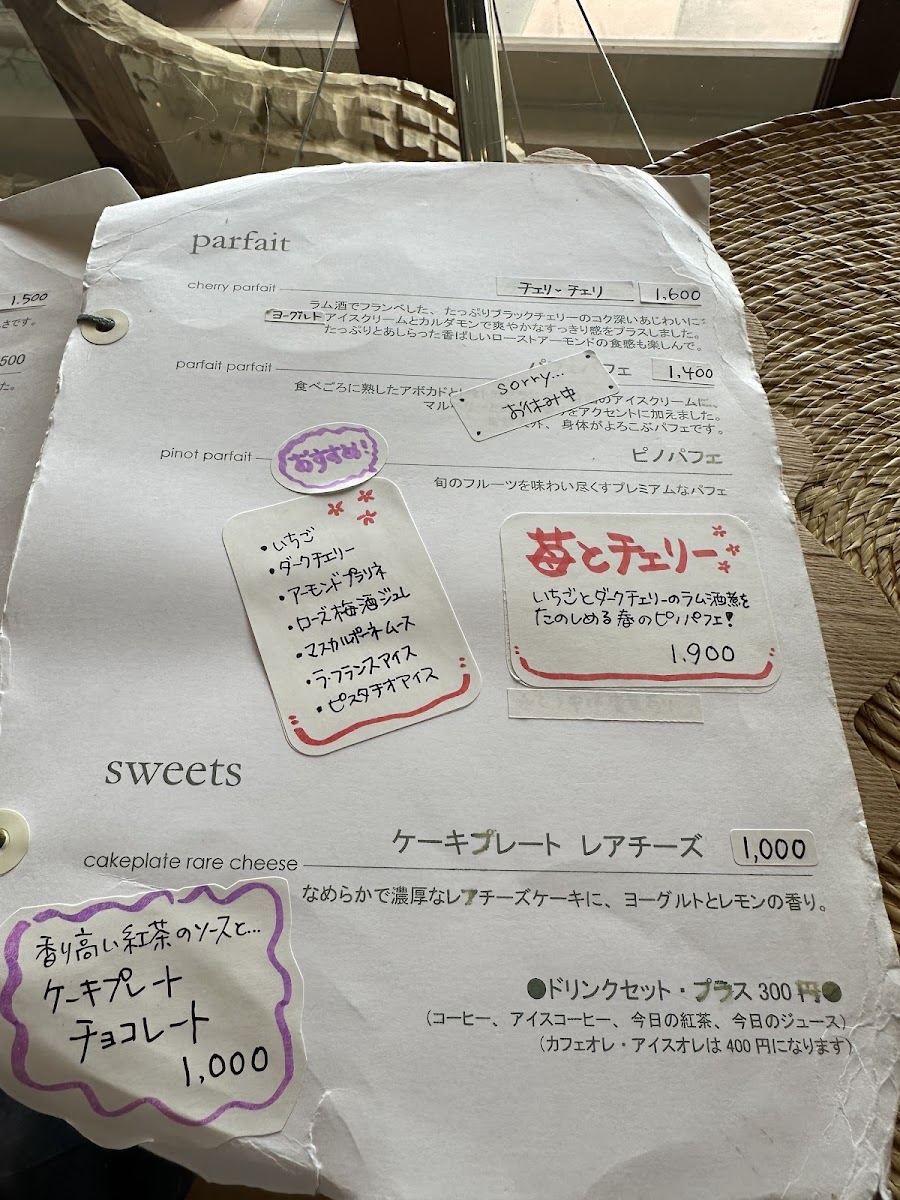 parfait
cherry parfait
チェリ・チェリ
1,600
ラム酒でフランベした、たっぷりブラックチェリーのコク深いあじわいに
ヨーグルトアイスクリームとカルダモンで爽やかなすっきり感をプラスしました。
たっぷりとあしらった香ばしいローストアーモンドの食感も楽しんで。
parfait parfait
フェ
1,400
sorry...
お休み中
食べごろに熟したアボカドと
のアイスクリームに、
マル
をアクセントに加えました。
身体がよろこぶパフェです。
pinot parfait
おすすめ!
ピノパフェ
旬のフルーツを味わい尽くすプレミアムなパフェ
・いちご
・ダークチェリー
・アーモンドプラリネ
・ローズ梅酒ジュレ
・マスカルポーネムース
・ラ・フランスアイス
・ピスタチオアイス
苺とチェリー
いちごとダークチェリーのラム酒煮を
たのしめる春のピノパフェ!
1,900
sweets
ケーキプレート レアチーズ
1,000
cakeplate rare cheese
なめらかで濃厚なレアチーズケーキに、ヨーグルトとレモンの香り。
香り高い紅茶のソースと...
ケーキプレート
チョコレート
1,000
●ドリンクセット・プラス300円●
(コーヒー、アイスコーヒー、今日の紅茶、今日のジュース)
(カフェオレ・アイスオレは400円になります)
1.500
さです。
500
た。